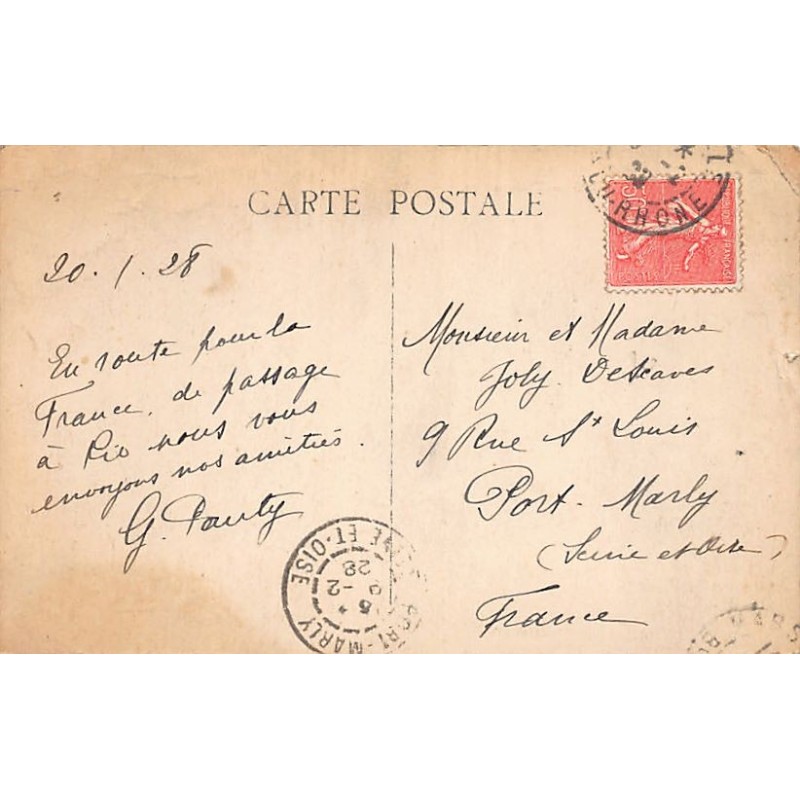 CARTE POSTALE
20.1.28
En route pour la
France, de passage
à Rio nous vous
envoyons nos amitiés.
G. Pauty
Monsieur et Madame
Joly Descaves
9 Rue St Louis
Port-Marly
(Seine et Oise)
France
DU-RHONE
PORT-MARLY
NE-ET-OISE
5 -2
28